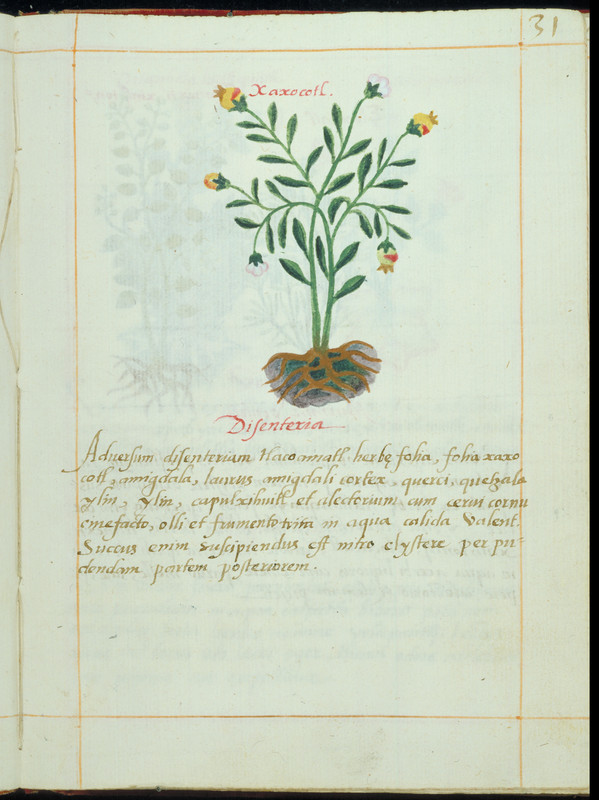 31
Xaxocotl.
Disenteria
Adversum disenteriam tlacoamatl herbę folia, folia xaxo
cotl, amigdala, laurus amigdali cortex, querci, quetzala
ylin, ylin, capulxihuitl et alectorium cum cervi cornu
cinefacto, olli et frumento trita in aqua calida valent.
Succus enim suscipiendus est intro clystere per pu-
dendam partem posteriorem.